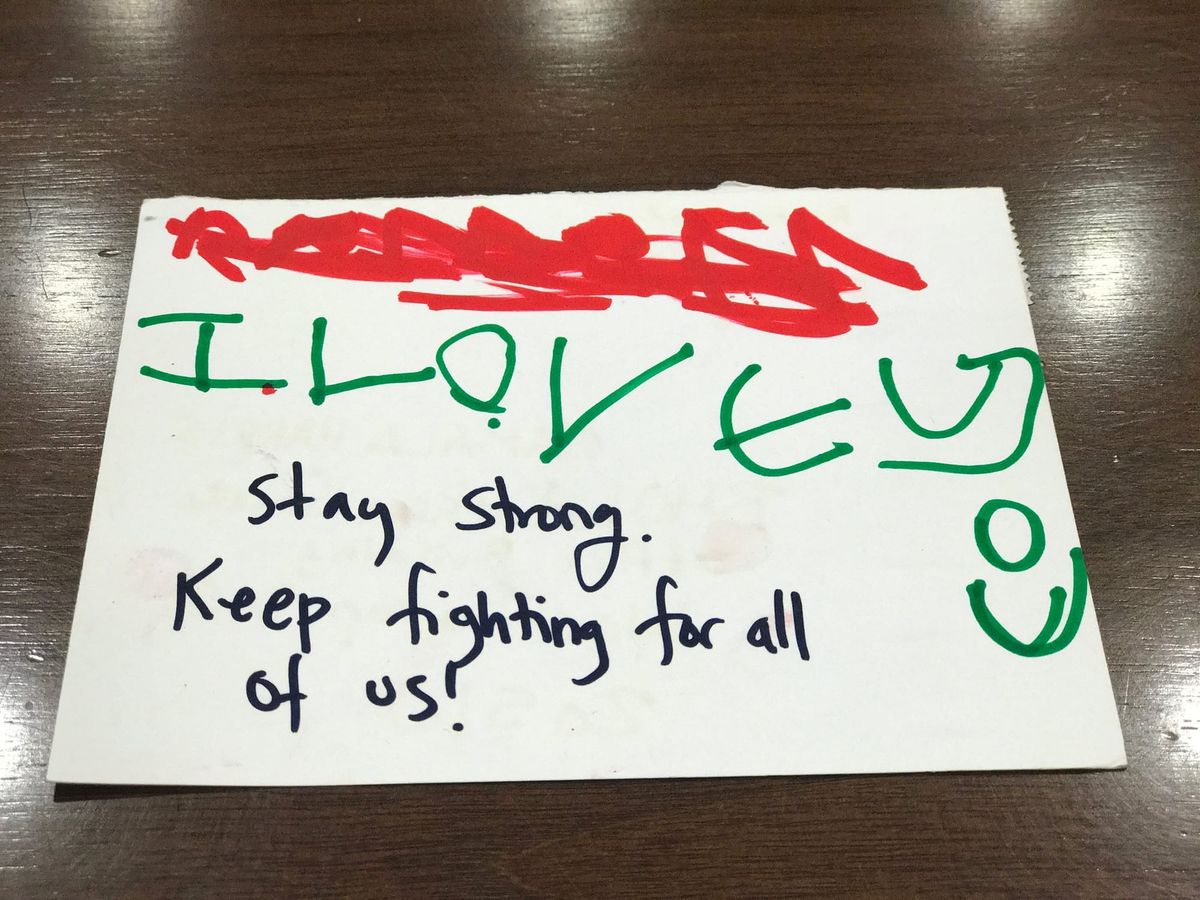 I LOVE YOU
Stay strong.
Keep fighting for all
of us!